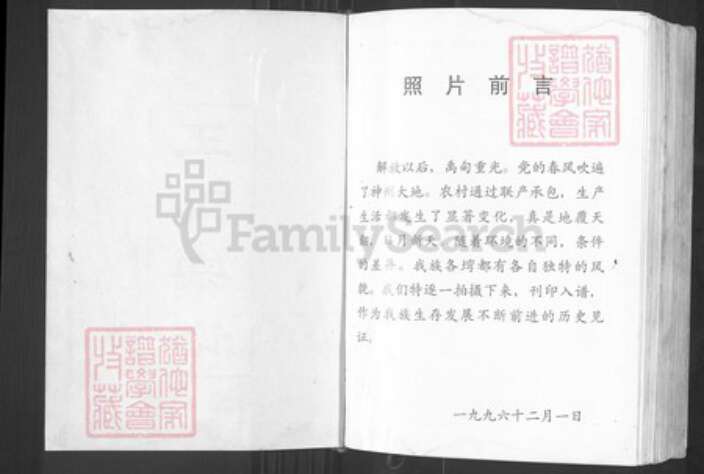 照片前言
解放以后，禹甸重光。党的春风吹遍
了神州大地。农村通过联产承包，生产
生活都发生了显著变化，真是地覆天
翻，日月新天。随着环境的不同，条件
的差异。我族各塆都有各自独特的风
貌。我们特逐一拍摄下来，刊印入谱，
作为我族生存发展不断前进的历史见
证。
一九九六十二月一日
FamilySearch